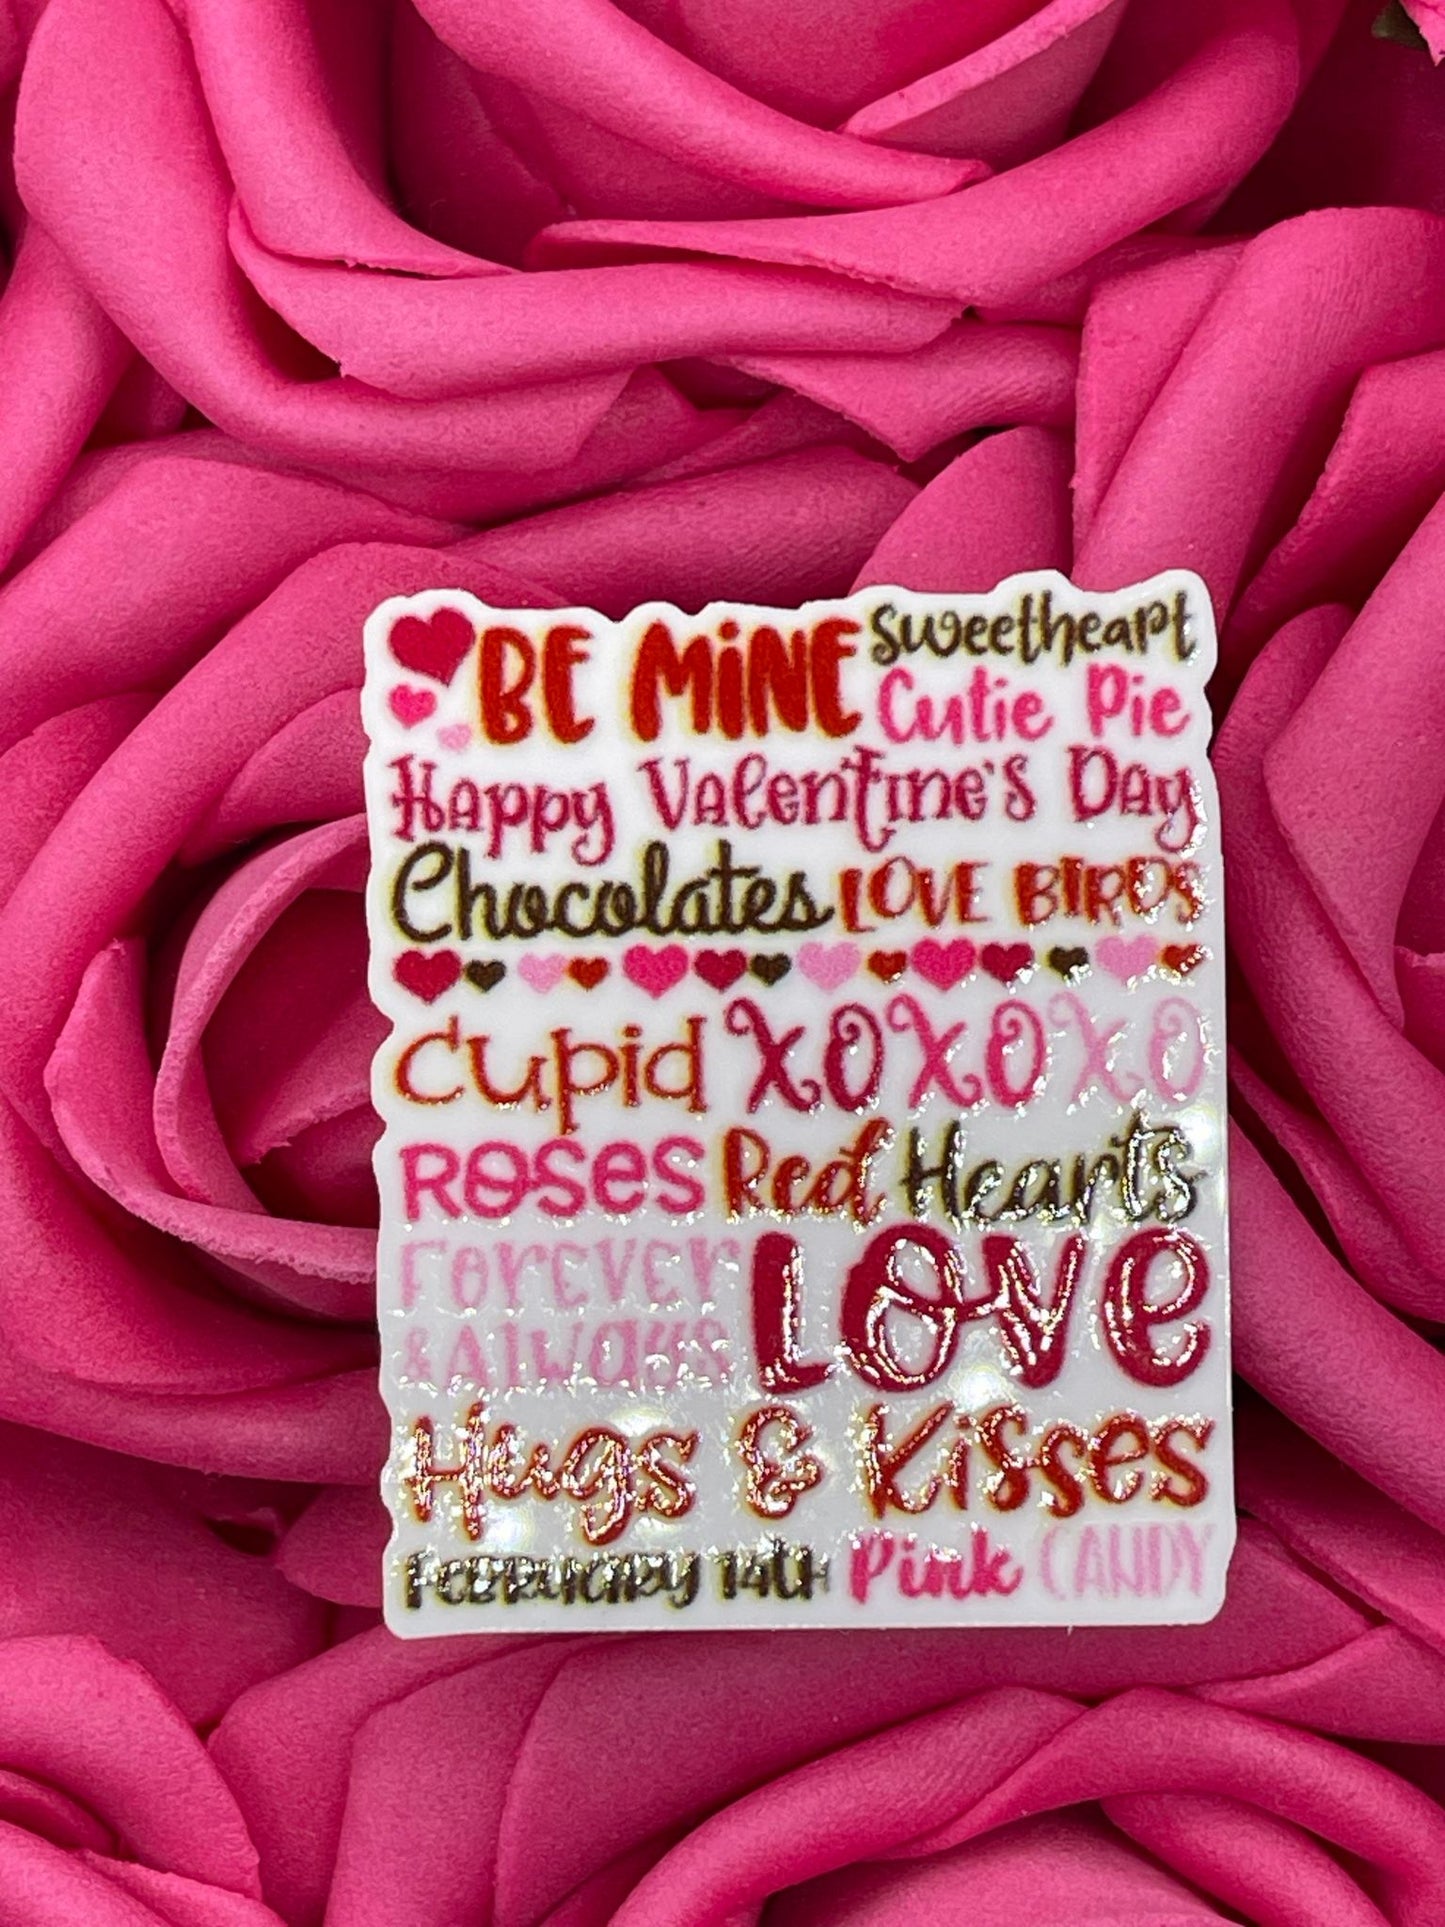 BE MINE Sweetheart
Cutie Pie
Happy Valentine's Day
Chocolates LOVE BIRDS
Cupid XOXOXO
ROSES Red Hearts
FOREVER
& Always LOVE
Hugs & Kisses
FEBRUARY 14th Pink CANDY